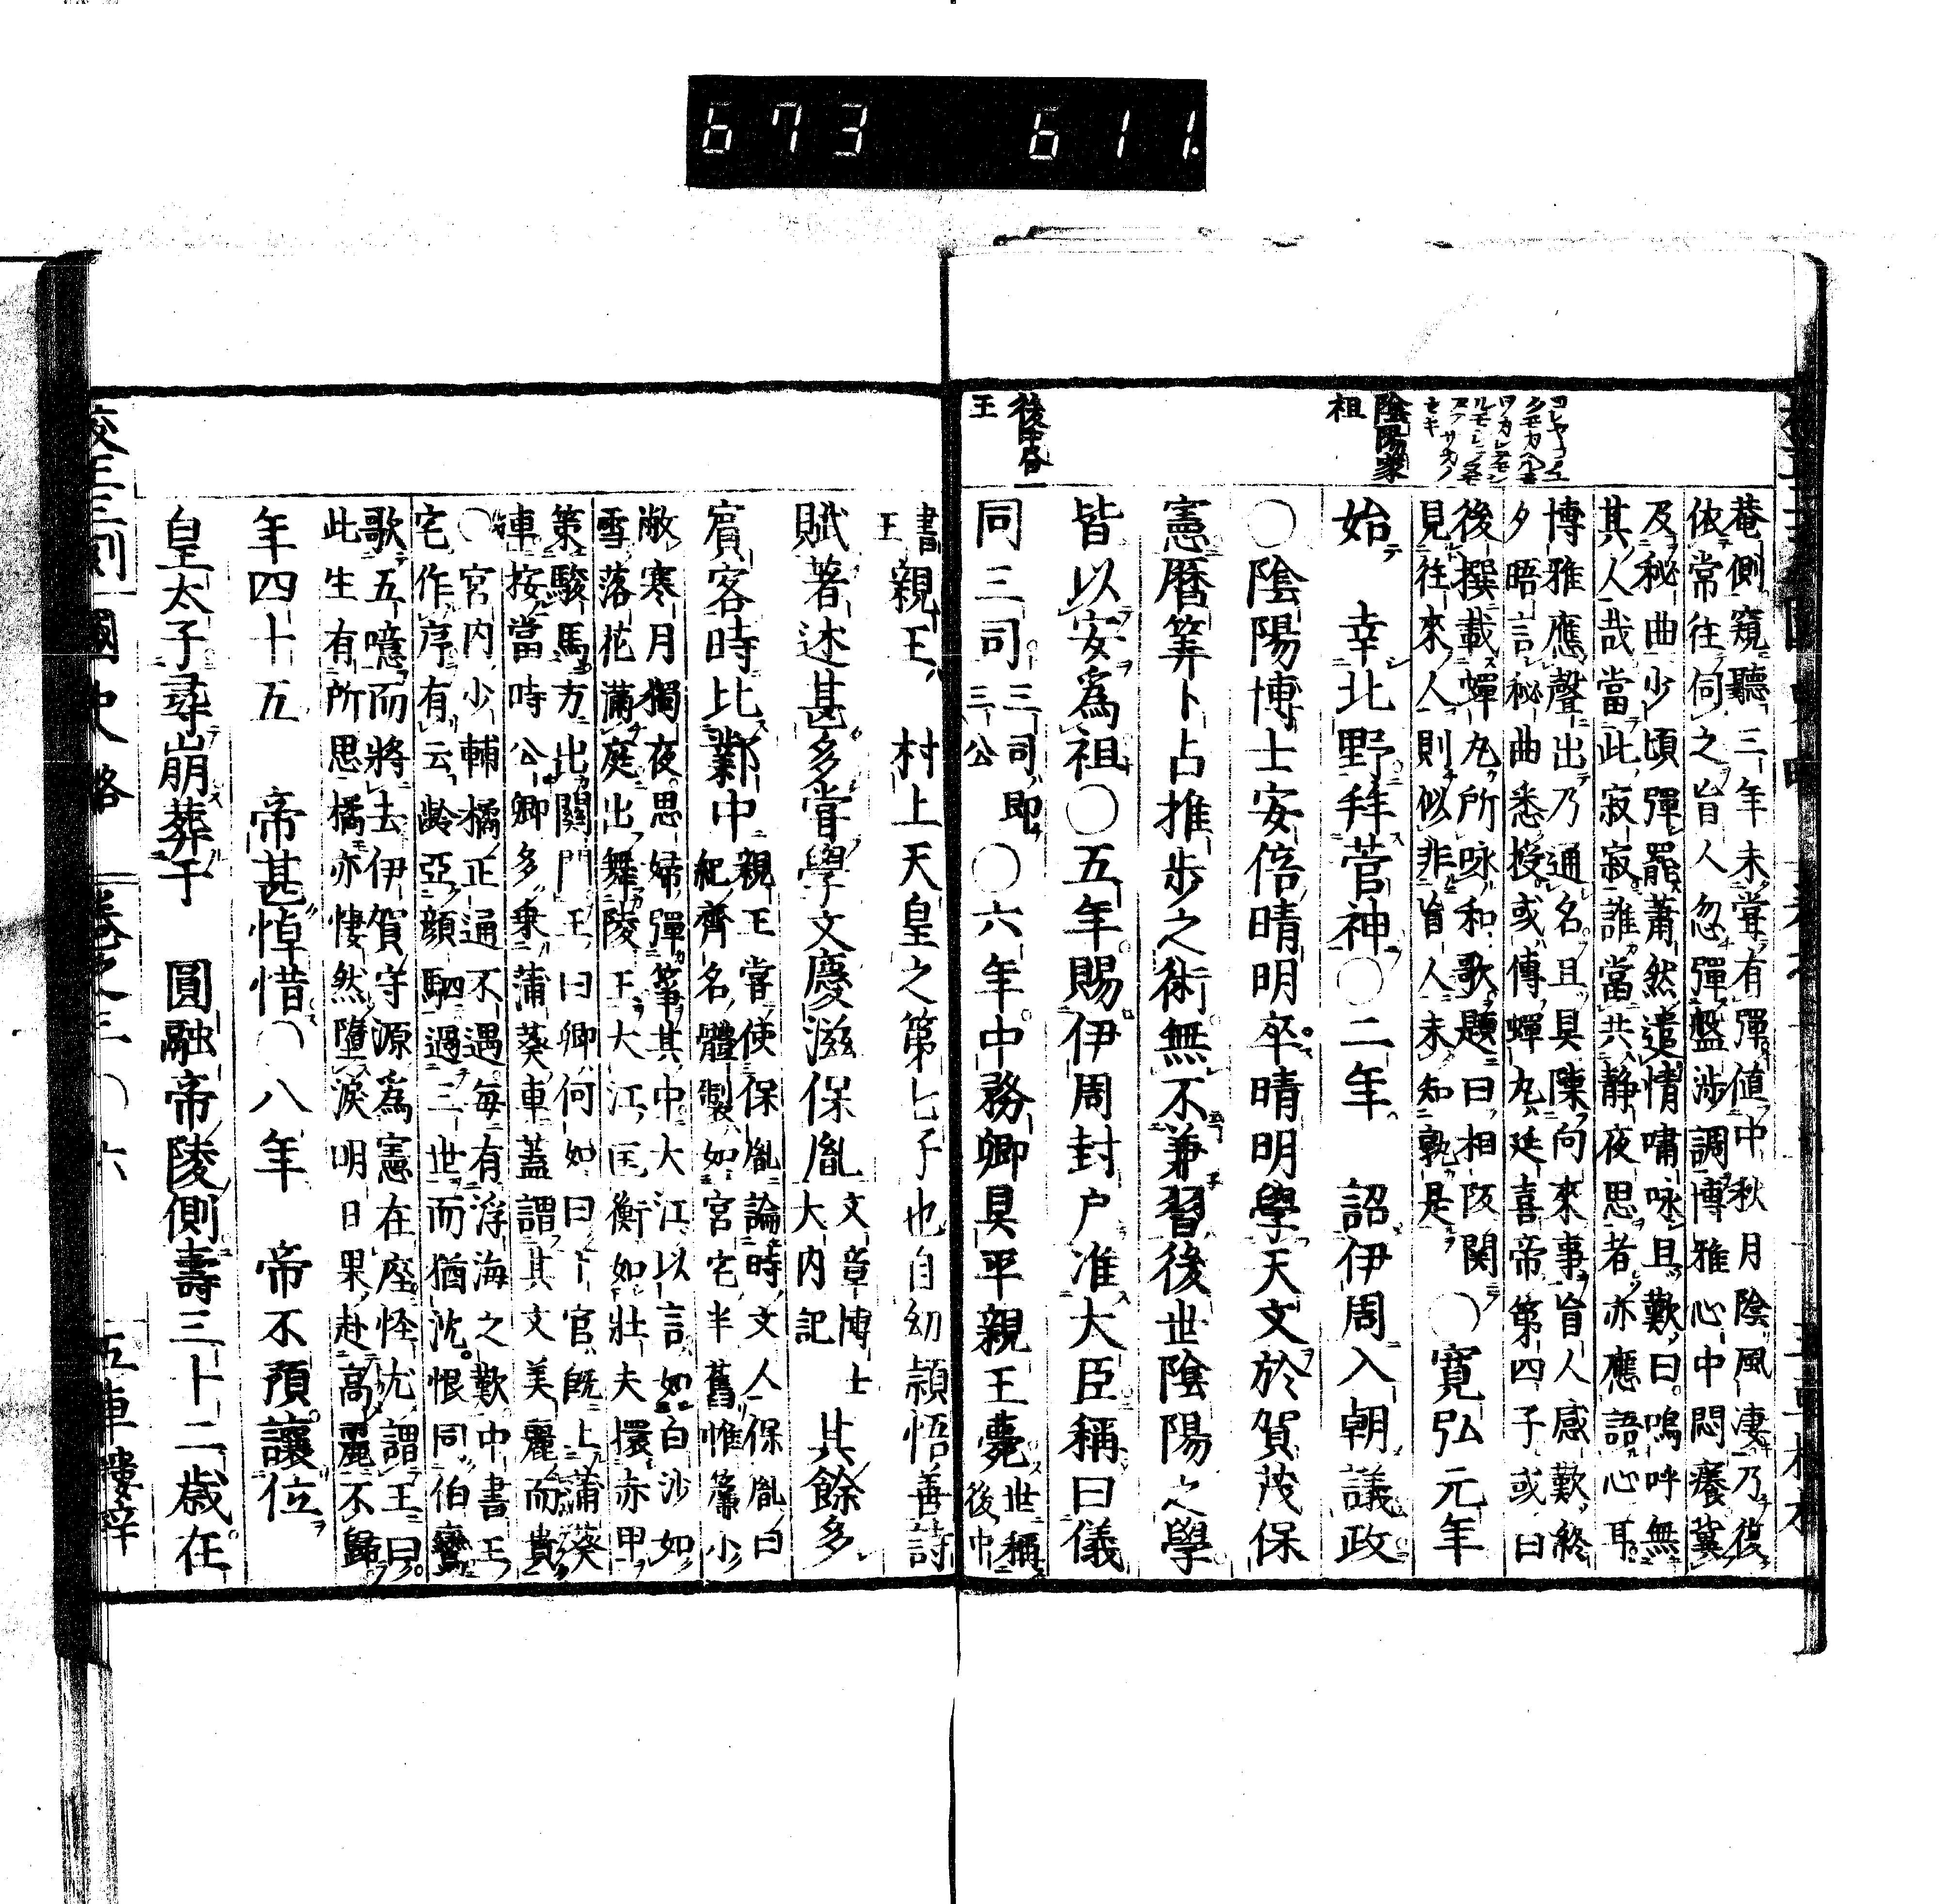 673 611.
コレヤコノ
陰陽家
祖
後中書
王
菴側窺聽三年未嘗有彈値中秋月陰風凄乃復
依常往伺之盲人忽彈盤渉調博雅心中悶癢冀
及秘曲少頃彈罷蕭然遣情嘯咏且歎曰嗚呼無
其人哉當此寂寂誰當共静夜思者亦應語心耳
博雅應聲出乃通名且具陳向來事盲人感歎終
夕晤言秘曲悉授或傳蟬丸延喜帝第四子或曰
後撰載蟬丸所咏和歌題曰相阪関
見往來人則似非盲人未知孰是
○寛弘元年
始幸北野拜菅神○二年詔伊周入朝議政
○陰陽博士安倍晴明卒晴明學天文於賀茂保
憲暦筭卜占推歩之術無不兼習後世陰陽之學
皆以安爲祖○五年賜伊周封户准大臣稱曰儀
同三司三司即三公○六年中務卿具平親王薨世稱後中
書王親王村上天皇之第七子也自幼頴悟善詩
賦著述甚多嘗學文慶滋保胤文章博士大内記其餘多
賓客時比鄴中
親王嘗使保胤論時文人保胤曰
紀齊名體製如宮宅半舊惟簾小
敞寒月獨夜思婦彈箏其中大江以言如白沙如
雪落花滿庭出舞陵王大江匡衡如壯夫擐赤甲
策駿馬方出關門王曰卿何如曰下官既上蒲葵
車按當時公卿多乗蒲葵車蓋謂其文美麗而貴
○宮内少輔橘正通不遇毎有浮海之歎中書王
宅作序有云齡亞顔駟過三世而猶沈恨同伯鸞
歌五噫而將去伊賀守源爲憲在座怪尤謂王曰
此生有所思橘亦悽然墮淚明日果赴高麗不歸
年四十五帝甚悼惜○八年帝不預讓位
皇太子尋崩葬于圓融帝陵側壽三十二歳在
國史略
卷之三○六
五車樓梓